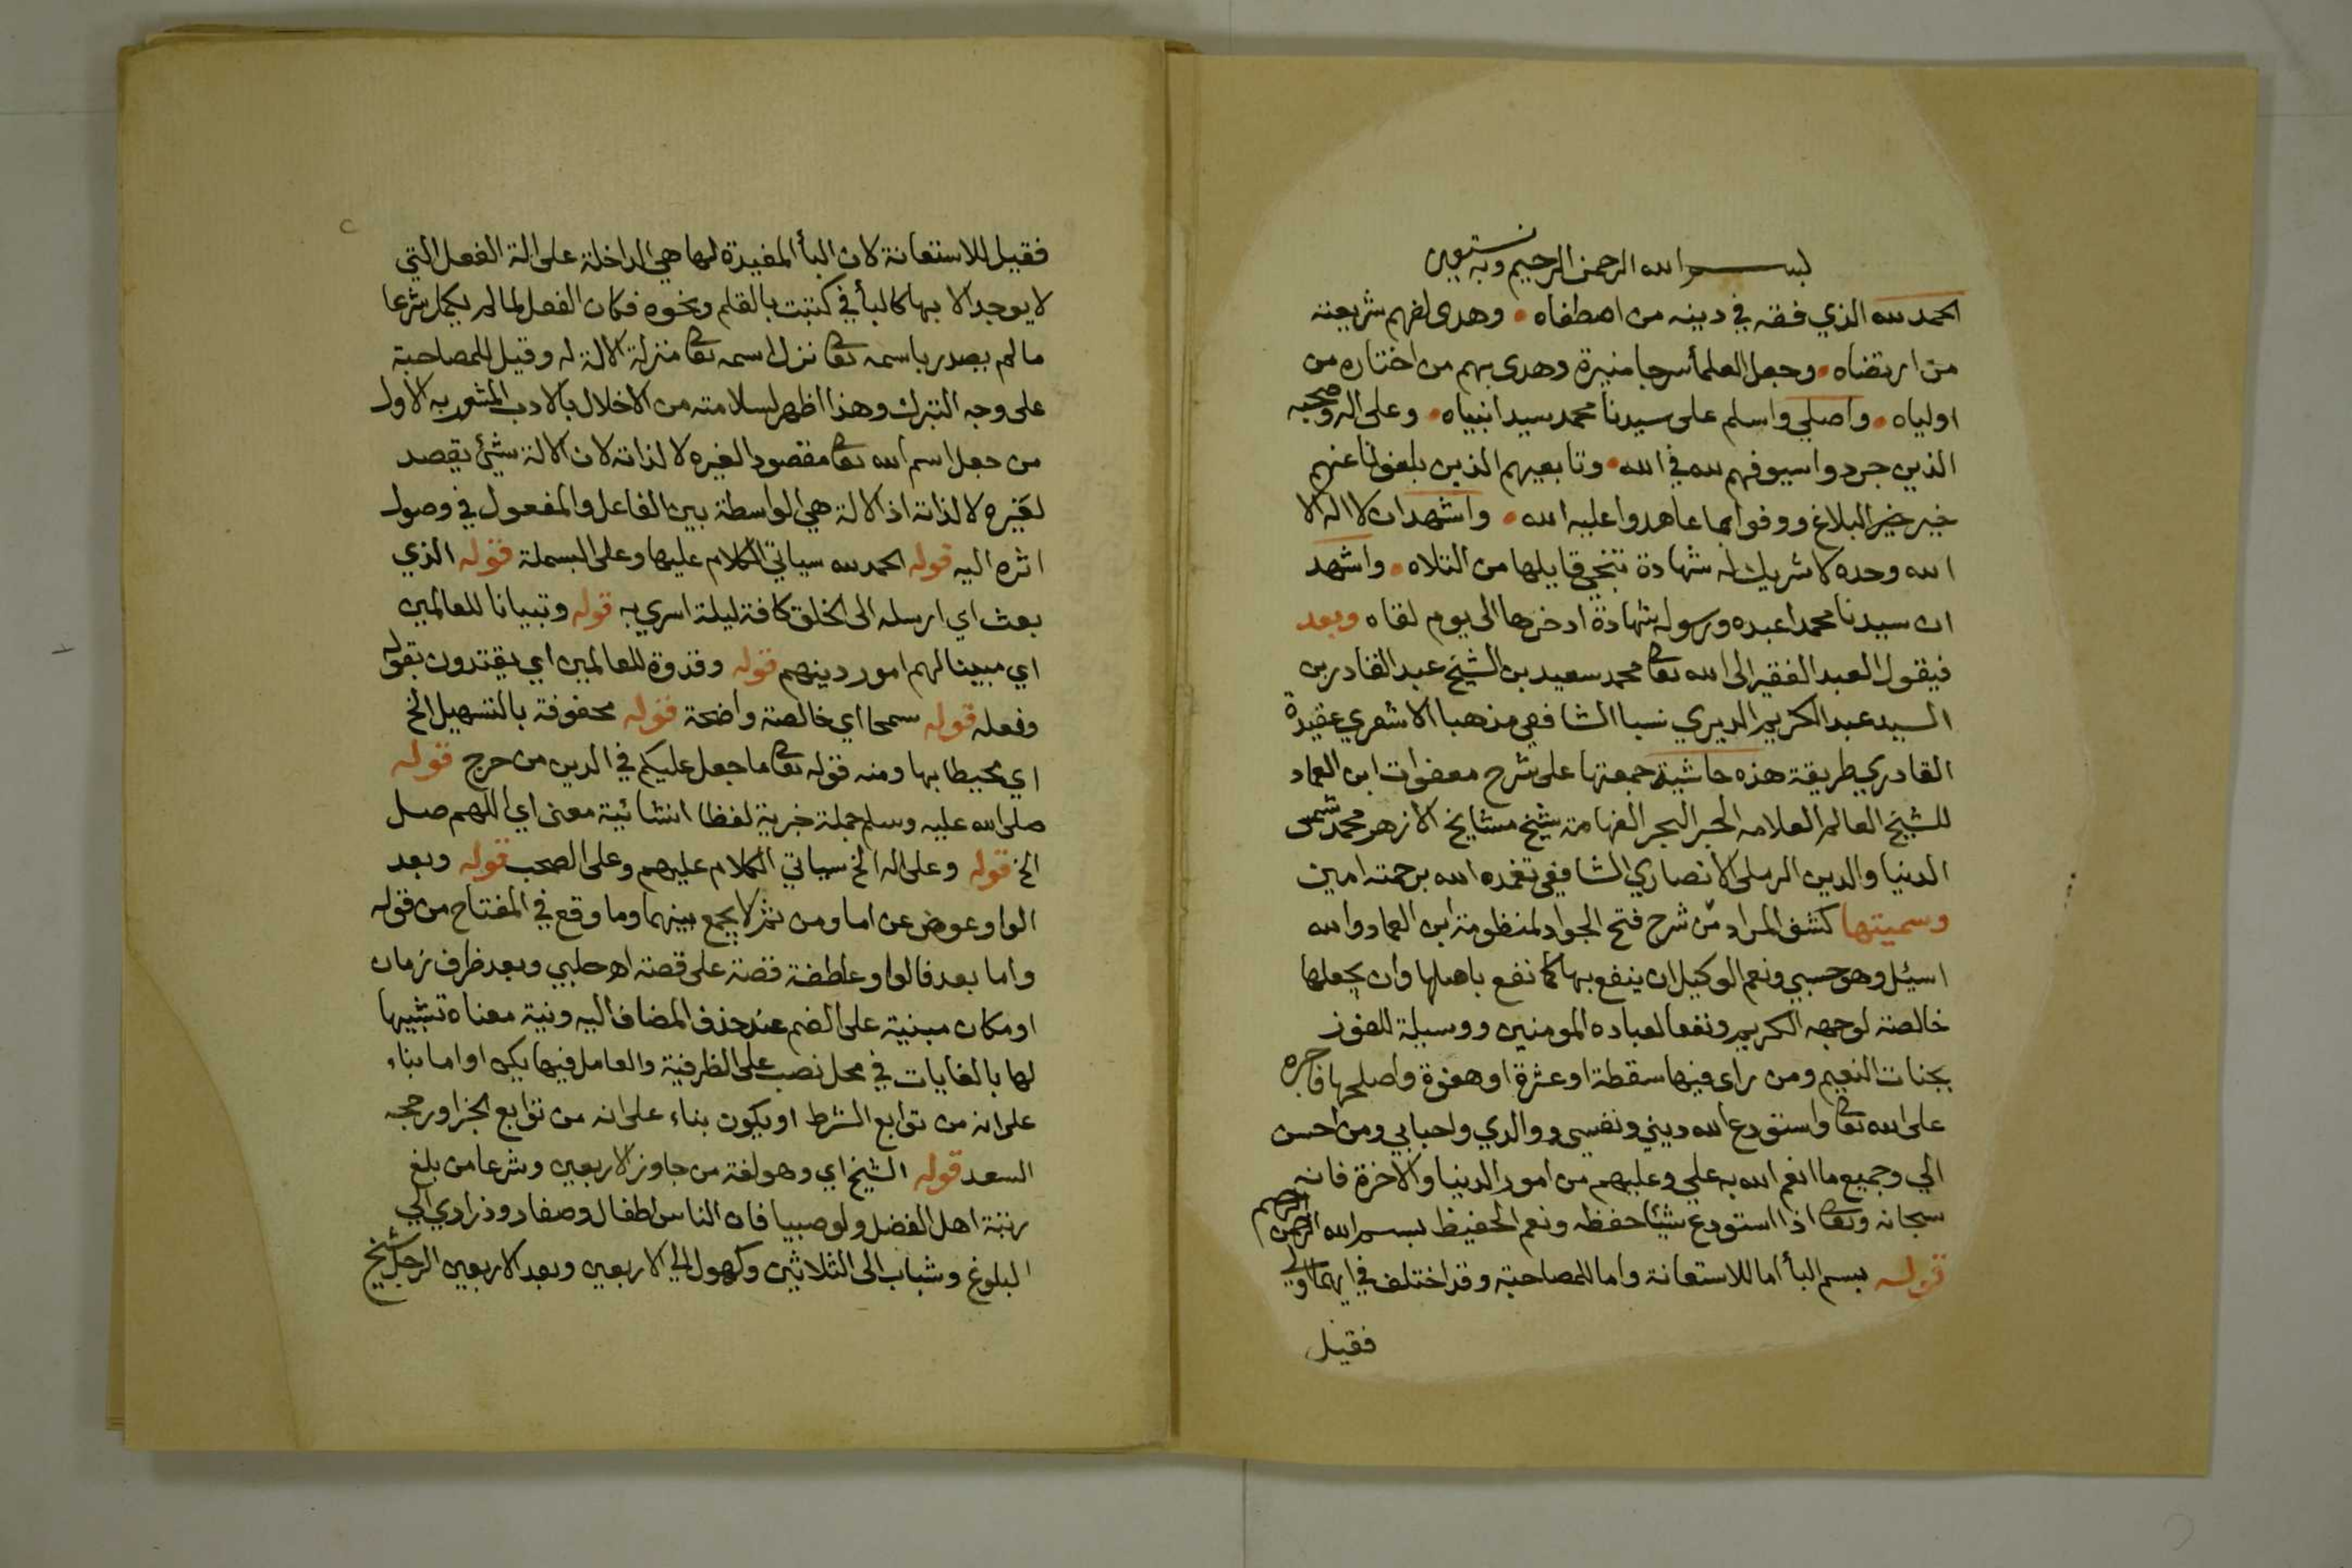 بسم الله الرحمن الرحيم وبه نستعين
الحمد لله الذي فقه في دينه من اصطفاه • وهدى لفهم شريعته
من ارتضاه • وجعل العلمأ سرجا منيرة وهدى بهم من اختاره من
اولياه • واصلي واسلم على سيدنا محمد سيد انبياه • وعلى اله وصحبه
الذين جردوا سيوفهم لله في الله • وتابعيهم الذين بلغوا لنا عنهم
خير خير البلاغ ووفوا بما عاهدوا عليه الله • واشهد ان لا اله الا
الله وحده لا شريك له شهادة تنجي قايلها من التلاه • واشهد
ان سيدنا محمدا عبده ورسوله شهادة ادخرها الى يوم لقاه وبعد
فيقول العبد الفقير الى الله تعالى محمد سعيد بن الشيخ عبد القادر بن
السيد عبد الكريم الديري نسبا الشافعي مذهبا الاشعري عقيدة
القادري طريقة هذه حاشية جمعتها على شرح معفوات ابن العماد
للشيخ العالم العلامه الحبر البحر الفهامة شيخ مشايخ الازهر محمد شمس
الدنيا والدين الرملى الانصاري الشافعي تغمده الله برحمته امين
وسميتها كشف المراد من شرح فتح الجواد لمنظومة ابن العماد والله
اسئل وهو حسبي ونعم الوكيل ان ينفع بها كما نفع باصلها وان يجعلها
خالصة لوجهه الكريم ونفعا لعباده المومنين ووسيلة للفوز
بجنات النعيم ومن راى فيها سقطة او عثرة او هفوة واصلحها فاجره
على الله تعالى واستودع الله ديني ونفسي ووالدي واحبابي ومن احسن
الي وجميع ما انعم الله به علي وعليهم من امور الدنيا والاخرة فانه
سبحانه وتعالى اذا استودع شيئا حفظه ونعم الحفيظ بسم الله الرحمن الرحيم
قوله بسم البأ اما للاستعانة واما للمصاحبة وقد اختلف في ايهما اولى
فقيل
فقيل للاستعانة لان البأ المفيدة لها هي الداخلة على الة الفعل التي
لا يوجد الا بها كالبأ في كتبت بالقلم ونحوه فكان الفعل لما لم يكمل شرعا
ما لم يصدر باسمه تعالى نزل اسمه تعالى منزلة الالة له وقيل للمصاحبة
على وجه التبرك وهذا اظهر لسلامته من الاخلال بالادب المشعر به الاول
من جعل اسم الله تعالى مقصودا لغيره لا لذاته لان الالة شيئ يقصد
لغيره لا لذاته اذ الالة هي الواسطة بين الفاعل والمفعول في وصول
اثره اليه قوله الحمد لله سياتي الكلام عليها وعلى البسملة قوله الذي
بعث اي ارسله الى الخلق كافة ليلة اسري به قوله وتبيانا للعالمين
اي مبينا لهم امور دينهم قوله وقدوة للعالمين اي يقتدون بقوله
وفعله قوله سمحا اي خالصة واضحة قوله محفوفة بالتسهيل الخ
اي محيطا بها ومنه قوله تعالى ما جعل عليكم في الدين من حرج قوله
صلى الله عليه وسلم جملة خبرية لفظا انشائية معنى اي اللهم صل
الخ قوله وعلى اله الخ سياتي الكلام عليهم وعلى الصحب قوله وبعد
الواو عوض عن اما ومن ثم لا يجمع بينهما وما وقع في المفتاح من قوله
واما بعد فالواو عاطفة قصة على قصة اه حلبي وبعد ظرف زمان
او مكان مبنية على الضم عند حذف المضاف اليه ونية معناه تشبيها
لها بالغايات في محل نصب على الظرفية والعامل فيها يكن او اما بناء
على انه من توابع الشرط او يكون بناء على انه من توابع الجزا ورجحه
السعد قوله الشيخ اي وهو لغة من جاوز الاربعين وشرعا من بلغ
رتبة اهل الفضل ولو صبيا فان الناس اطفال وصغار وذراري الى
البلوغ وشباب الى الثلاثين وكهول الى الاربعين وبعد الاربعين الرجل شيخ